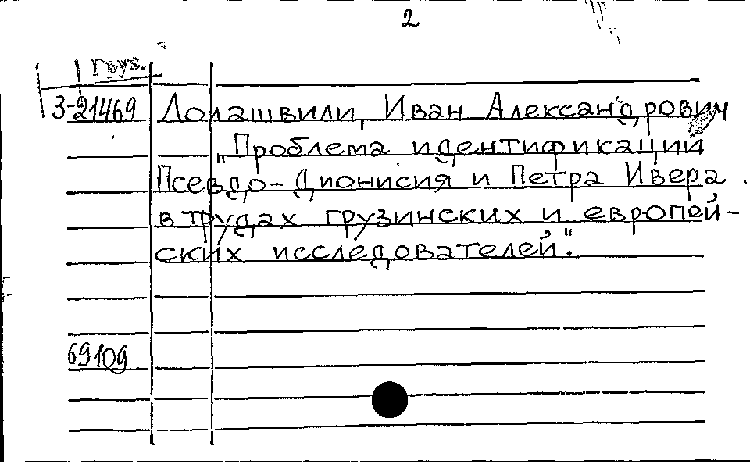 2
Груз.
3-21469 Долашвили, Иван Александрович
„Проблема идентификации
Псевдо-Дионисия и Петра Ивера
в трудах грузинских и европей-
ских исследователей".
69109